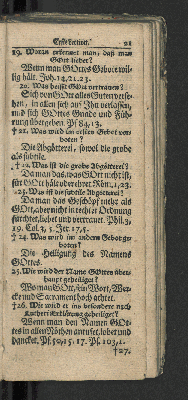 Erste Lection. 21
19. Woran erkennet man, daß man
GOtt lieber?
Wenn man GOttes Gebote wil-
lig hält. Joh. 14, 21. 23.
20. Was heißt GOtt vertrauen?
Sich von GOtt alles Guten verse-
hen, in allen sich auf Ihn verlassen,
und sich GOttes Gnade und Füh-
rung übergeben. Ps. 84, 13.
† 21. Was wird im ersten Gebot ver-
boten?
Die Abgötterei, sowol die grobe
als subtile.
† 22. Was ist die grobe Abgötterei?
Da man das, was GOtt nicht ist,
für GOtt hält oder ehret. Röm. 1, 23.
† 23. Was ist die subtile Abgötterei?
Da man das Geschöpf mehr als
GOtt, aber nicht in rechter Ordnung
fürchtet, liebet und vertrauet. Phil. 3,
19. Col. 3, 5. Jer. 17, 5.
† 24. Was wird im andern Gebot ge-
boten?
Die Heiligung des Namens
GOttes.
25. Wie wird der Name GOttes über-
haupt geheiliget?
Wo man GOtt, sein Wort, Wer-
cke und Sacrament hoch achtet.
†26. Wie wird er ins besondere nach
Lutheri Erklärung geheiliget?
Wenn man den Namen GOt-
tes in allen Nöthen anrufet, lobet und
dancket. Ps. 50, 15. 17. Ps. 103, 1.
†27.